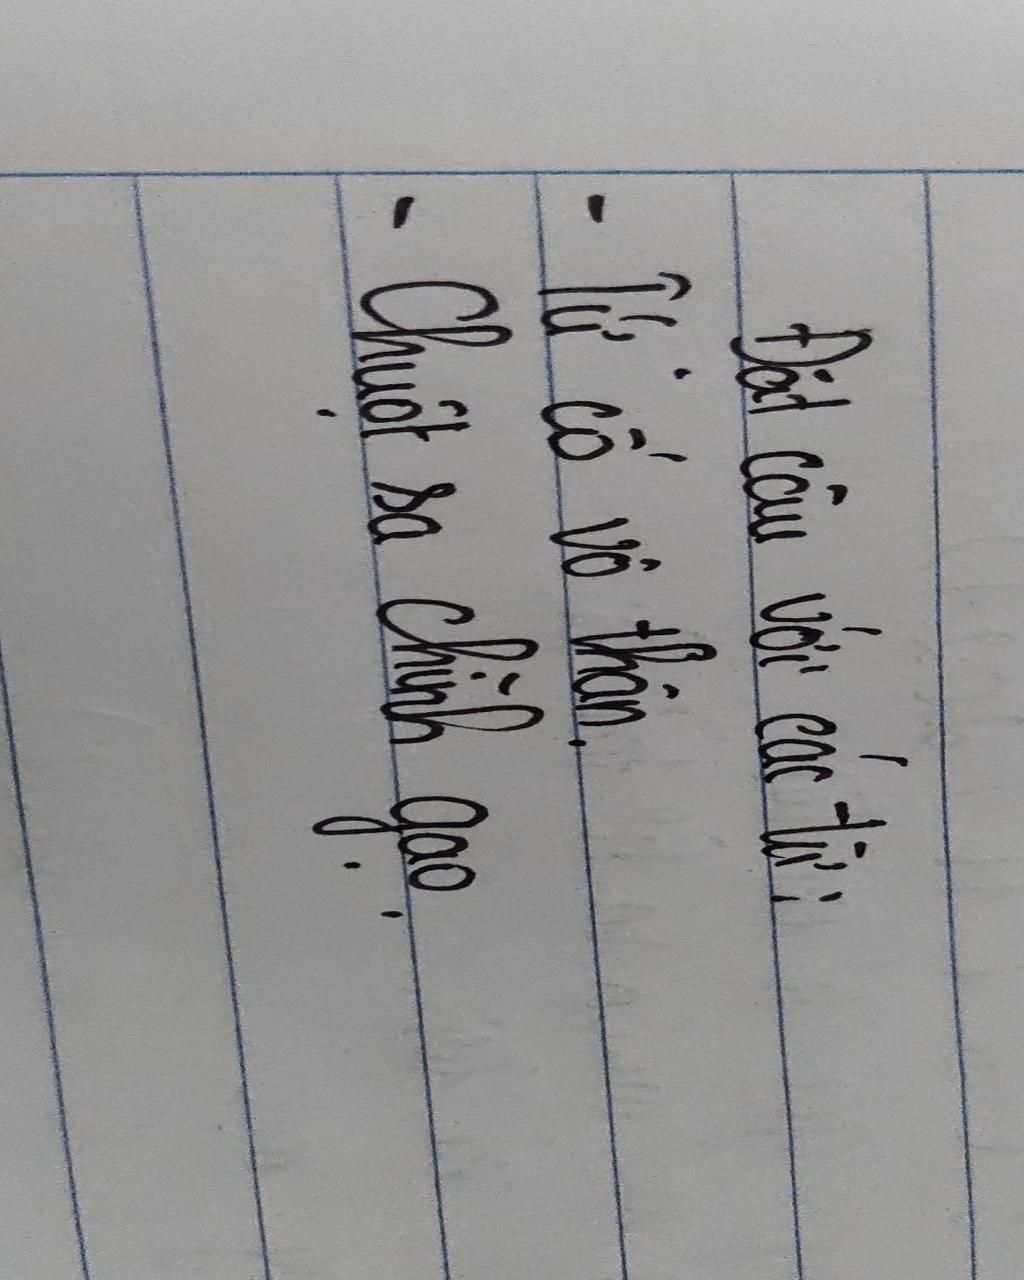 Đặt câu với các từ:
- Tứ cố vô thân.
- Chuột sa chĩnh gạo.